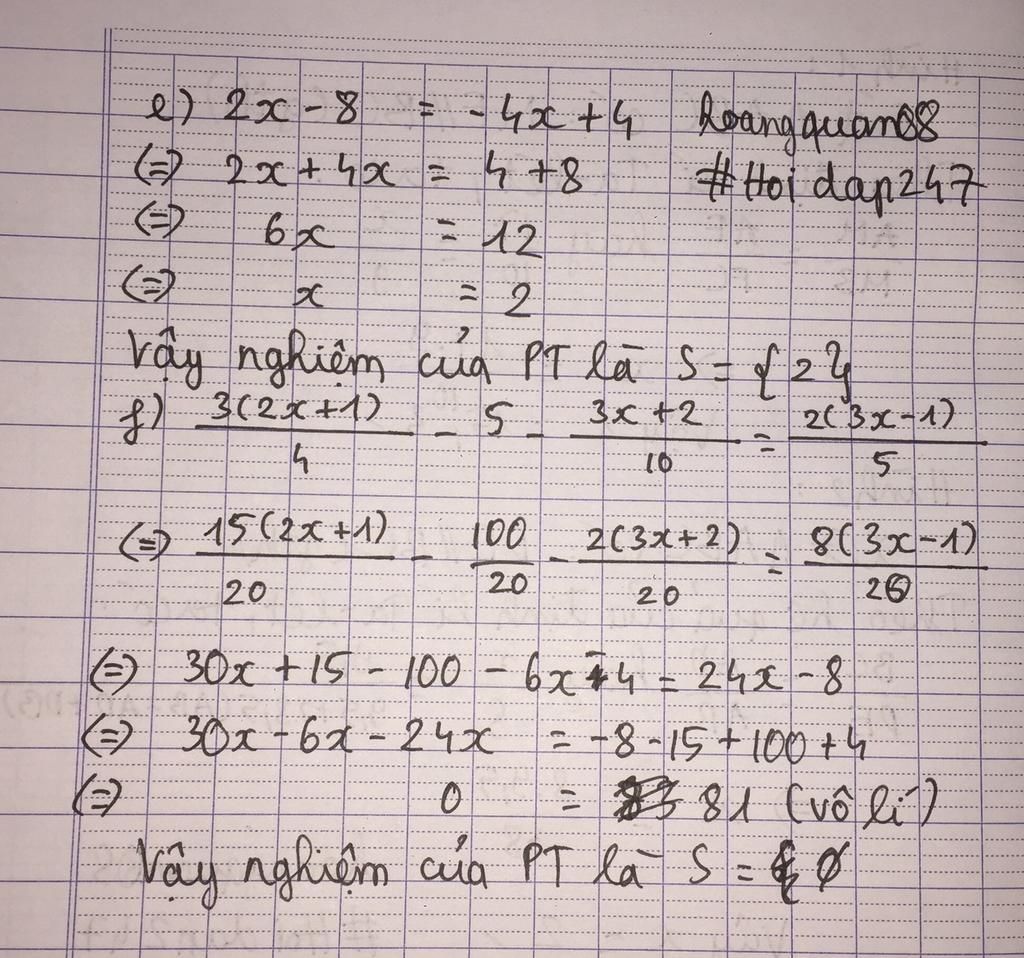 e) 2x - 8 = - 4x + 4 hoangquan88
(=) 2x + 4x = 4 + 8 #Hoidap247
(=) 6x = 12
(=) x = 2
Vậy nghiệm của PT là S = {2}
f) 3(2x+1)/4 - 5 - 3x+2/10 = 2(3x-1)/5
(=) 15(2x+1)/20 - 100/20 - 2(3x+2)/20 = 8(3x-1)/20
(=) 30x + 15 - 100 - 6x - 4 = 24x - 8
(=) 30x - 6x - 24x = -8 - 15 + 100 + 4
(=) 0 = 81 (vô lí)
Vậy nghiệm của PT là S = ∅